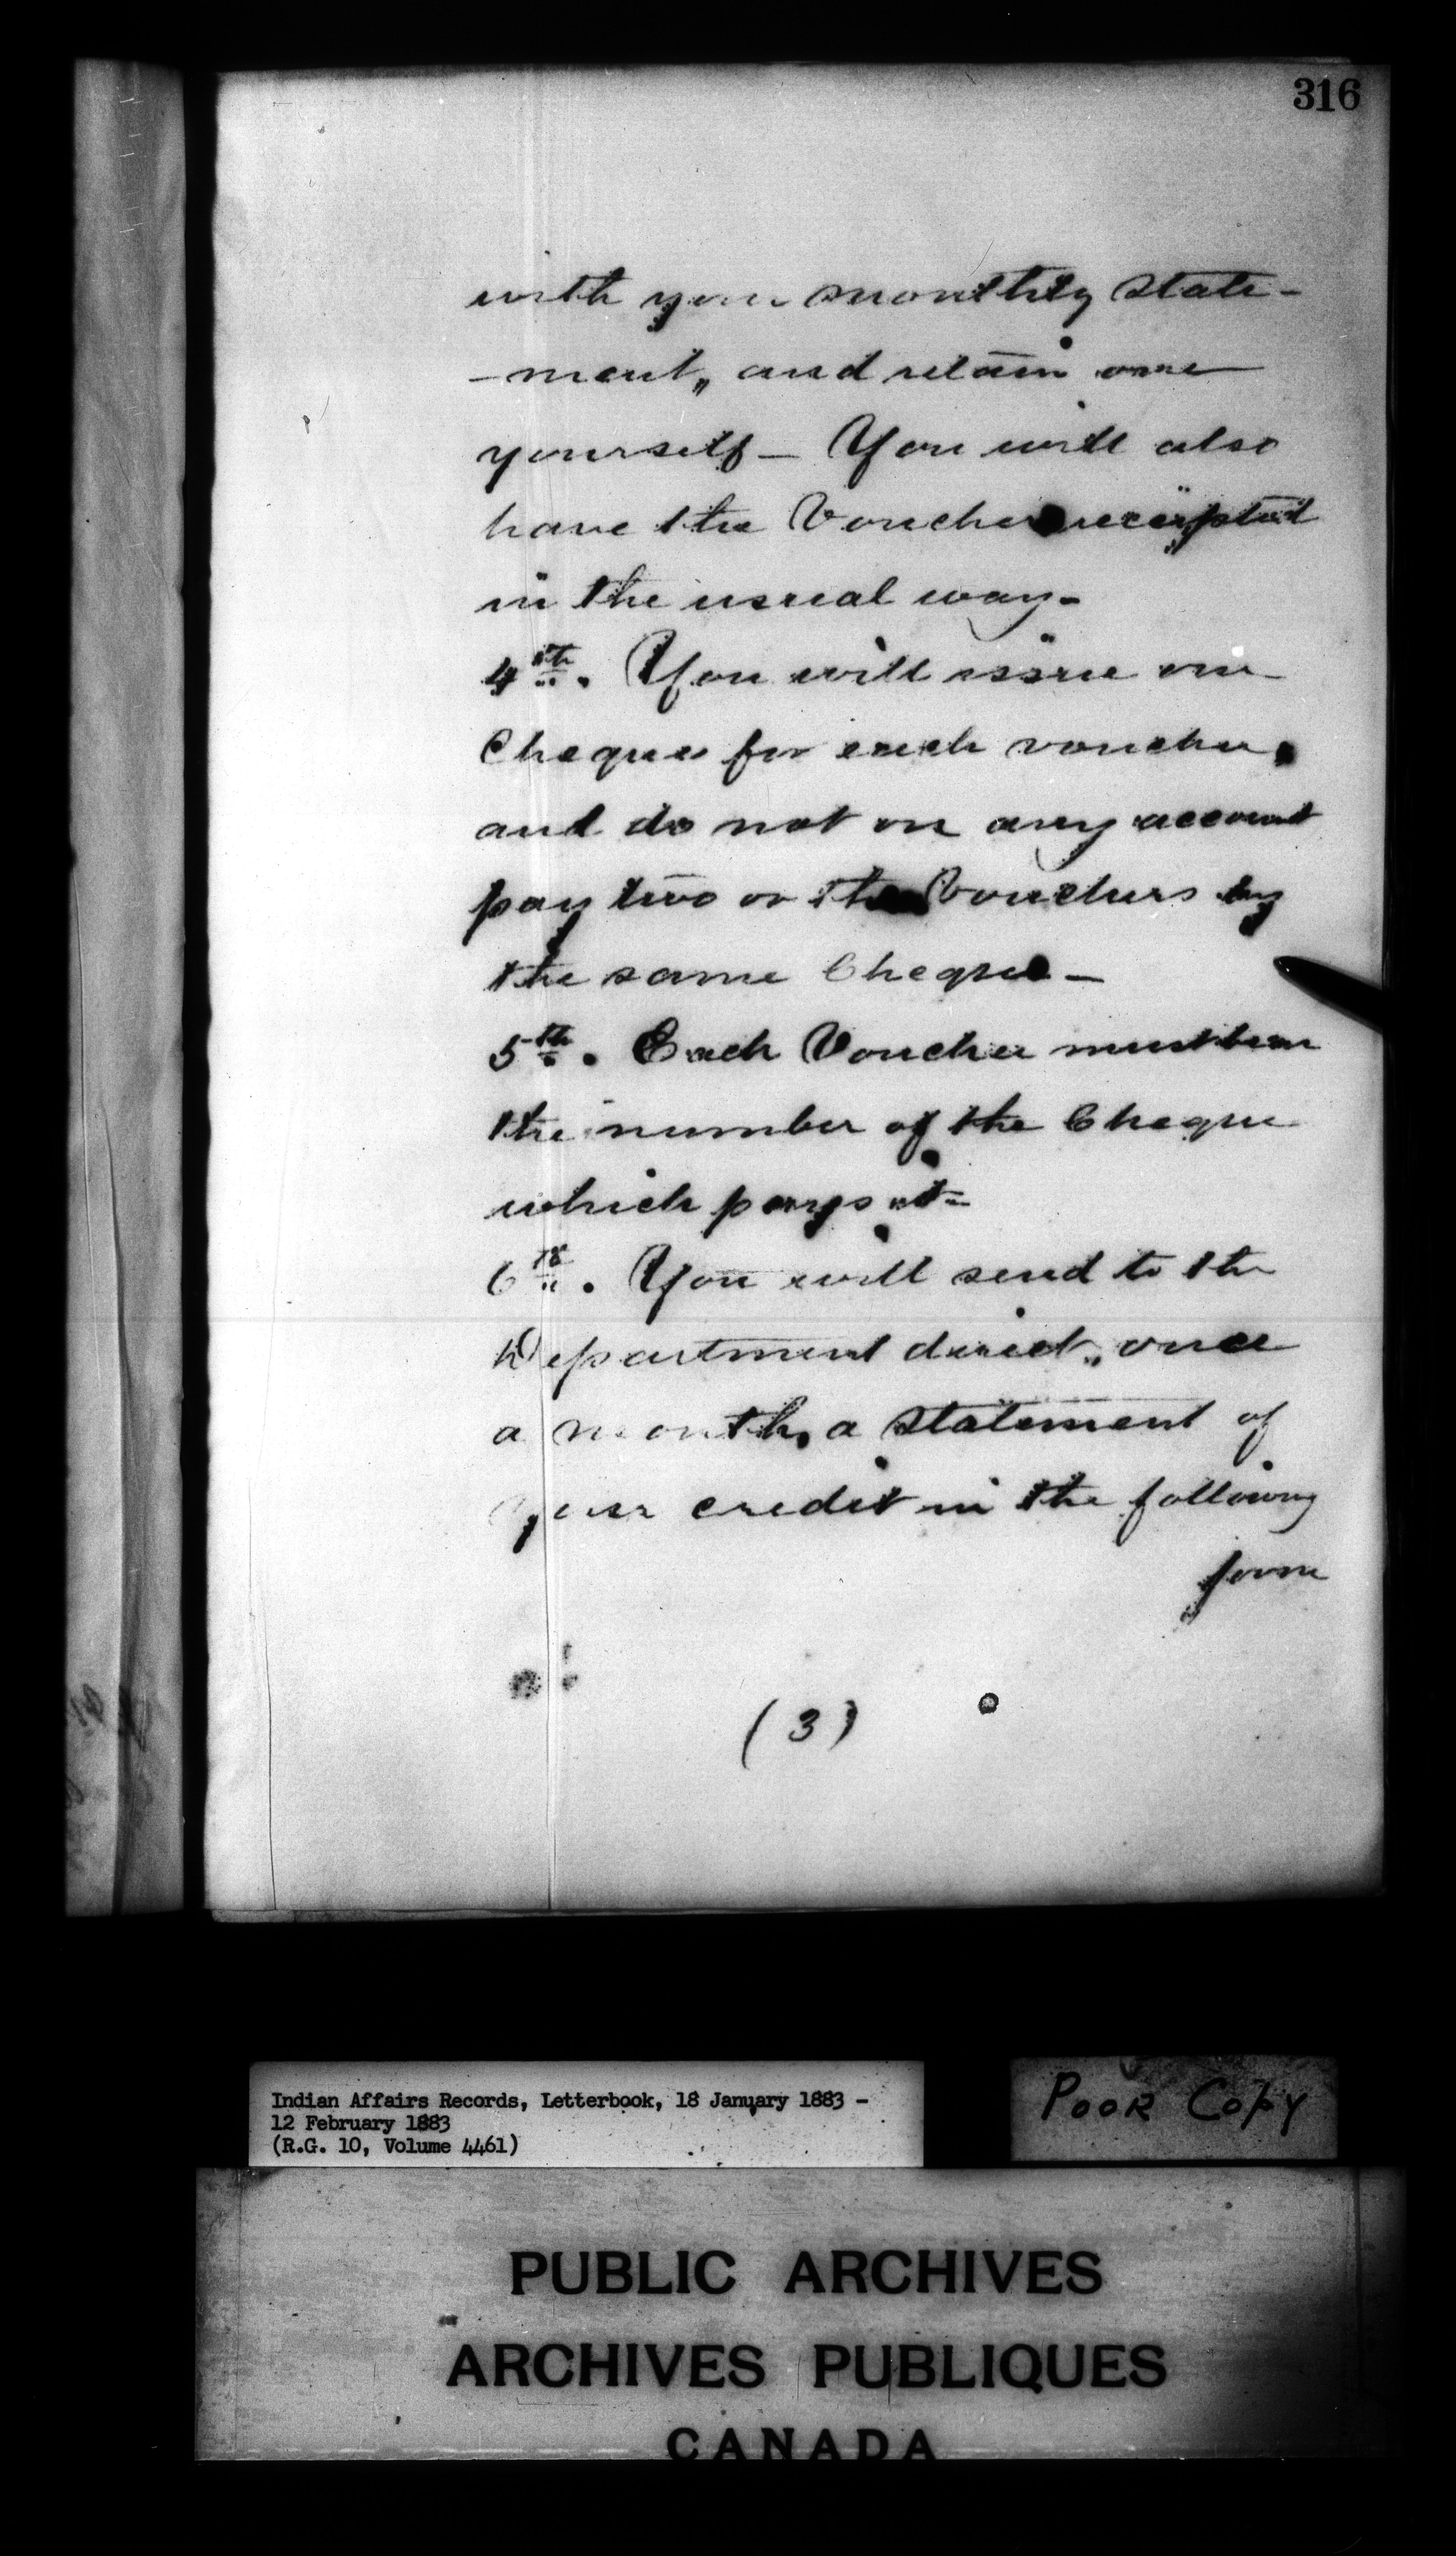 316
with your monthly State-
-ment, and retain one
yourself - You will also
have the Voucher receipted
in the usual way -
4th. You will issue one
Cheque for each voucher,
and do not on any account
pay two or Vouchers by
the same Cheque -
5th. Each Voucher must bear
the number of the Cheque
which pays it -
6th. You will send to the
Department direct, once
a month, a Statement of
your credit in the following
form
(3)
Indian Affairs Records, Letterbook, 18 January 1883 -
12 February 1883
(R.G. 10, Volume 4461)
POOR COPY
PUBLIC ARCHIVES
ARCHIVES PUBLIQUES
CANADA